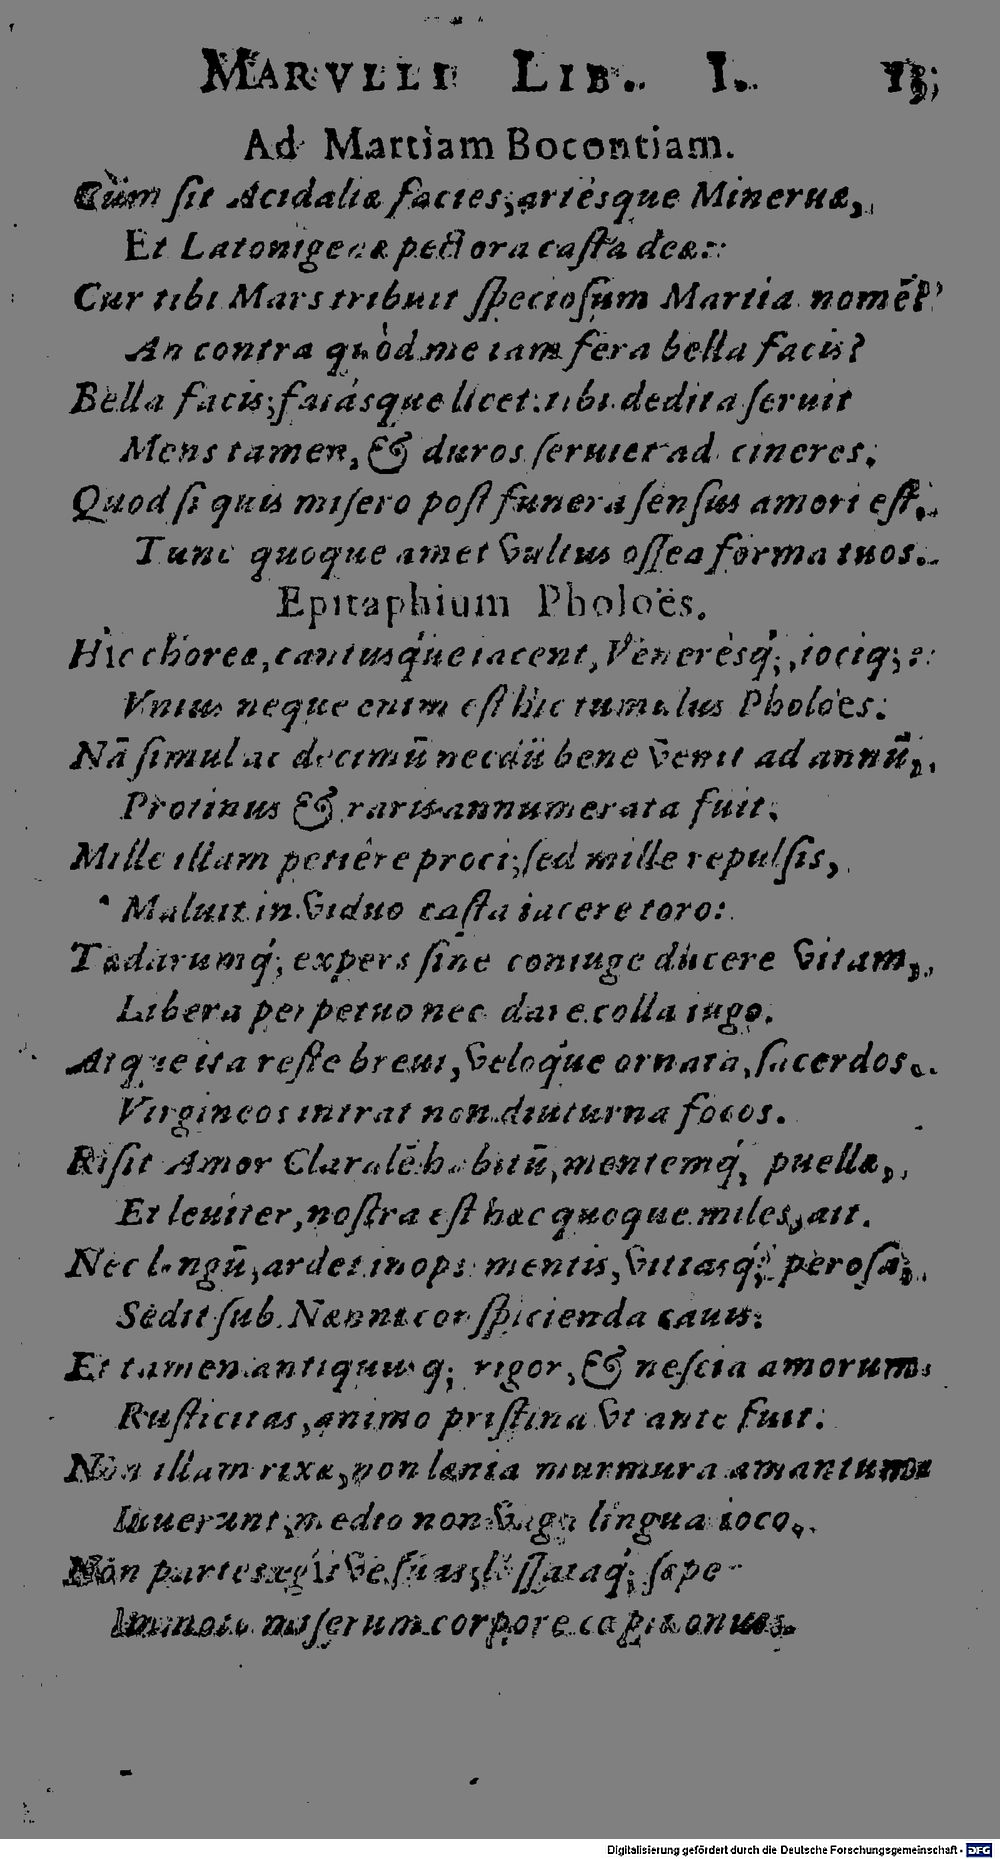 MARVLLI LIB. I.
Ad Martiam Bocontiam.
Cùm sit Acidaliæ facies, artésque Mineruæ,
Et Latonigenæ pectora casta deæ:
Cur tibi Mars tribuit speciosum Martia nomē?
An contra quòd me iam fera bella facis?
Bella facis; faiásque licet: tibi dedita seruit
Mens tamen, & duros seruiet ad cineres.
Quod si quis misero post funera sensus amori est,
Tunc quoque amet vultus ossea forma tuos.
Epitaphium Pholoës.
Hic choreæ, cantusq́ue iacent, Venerésq́;, iociq;:
Vnius neque enim est hic tumulus Pholoës:
Nā simul ac decimū necdū bene venit ad annū,
Protinus & raris annumerata fuit.
Mille illam petiêre proci; sed mille repulsis,
Maluit in viduo casta iacere toro:
Tædarumq́; expers sine coniuge ducere vitam,
Libera perpetuo nec dare colla iugo.
Atque ita veste breui, veloq́ue ornata, sacerdos
Virgineos intrat non diuturna focos.
Risit Amor habitū, mentemq́; puellæ,
Et leuiter, nostra est hæc quoque miles, ait.
Nec longū, ardet inops mentis, vittasq́; perosa,
Sedit sub conspicienda cauis.
Et tamen antiquus q; rigor, & nescia amorum
Rusticitas, animo pristina vt ante fuit.
Non illam rixæ, non lænia murmura amantum
Iuuerunt, medio non vaga lingua ioco.
Non partes suas, sæpe
miserum corpore